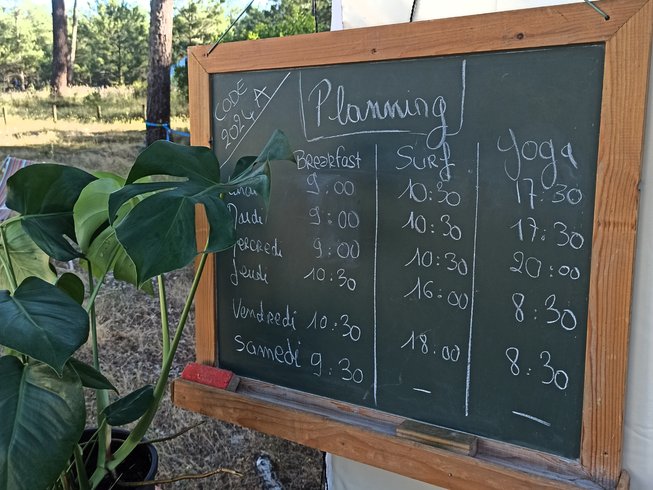 CODE
2024A
Planning
Breakfast Surf Yoga
9:00 10:30 17:30
Mardi 9:00 10:30 17:30
ercredi 9:00 10:30 20:00
Jeudi 10:30 16:00 8:30
Vendredi 10:30 18:00 8:30
Samedi 9:30 – –